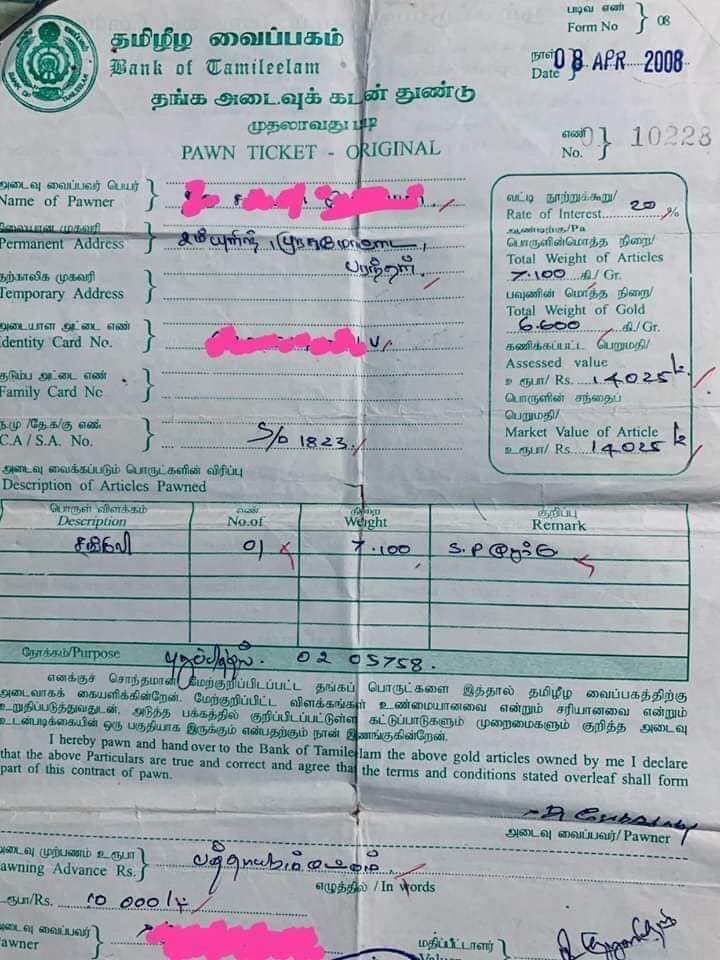 படிவ எண்
Form No } 08
தமிழீழ வைப்பகம்
Bank of Tamileelam
BANK OF TAMILEELAM
நாள்
Date } 08 APR 2008
தங்க அடைவுக் கடன் துண்டு
முதலாவது படி
PAWN TICKET - ORIGINAL
எண்
No. } 01 10228
அடைவு வைப்பவர் பெயர்
Name of Pawner
நிலையான முகவரி
Permanent Address
பரந்தன்.
தற்காலிக முகவரி
Temporary Address
அடையாள அட்டை எண்
Identity Card No. V
குடும்ப அட்டை எண்
Family Card No
ந.மு /தே.க/கு எண்
C.A / S.A. No. S/D 1823
வட்டி நூற்றுக்கூறு/
Rate of Interest 20 %
ஆண்டிற்கு/Pa
பொருளின்மொத்த நிறை/
Total Weight of Articles
7.100 கி/ Gr.
பவுணின் மொத்த நிறை/
Total Weight of Gold
6.600 கி/Gr.
கணிக்கப்பட்ட பெறுமதி/
Assessed value
உ ரூபா/ Rs. 14025/=
பொருளின் சந்தைப்
பெறுமதி/
Market Value of Article
உ.ரூபா/ Rs. 14025/=
அடைவு வைக்கப்படும் பொருட்களின் விரிப்பு
Description of Articles Pawned
பொருள் விளக்கம் எண் நிறை குறிப்பு
Description No.of Weight Remark
சங்கிலி 01 7.100 S.P
நோக்கம்/Purpose புதுப்பித்தல். 02 05758.
எனக்குச் சொந்தமான மேற்குறிப்பிடப்பட்ட தங்கப் பொருட்களை இத்தால் தமிழீழ வைப்பகத்திற்கு
அடைவாகக் கையளிக்கின்றேன். மேற்குறிப்பிட்ட விளக்கங்கள் உண்மையானவை என்றும் சரியானவை என்றும்
உறுதிப்படுத்துவதுடன். அடுத்த பக்கத்தில் குறிப்பிடப்பட்டுள்ள கட்டுப்பாடுகளும் முறைமைகளும் குறித்த அடைவு
உடன்படிக்கையின் ஒரு பகுதியாக இருக்கும் என்பதற்கும் நான் இணங்குகின்றேன்.
I hereby pawn and hand over to the Bank of Tamileelam the above gold articles owned by me I declare
that the above Particulars are true and correct and agree that the terms and conditions stated overleaf shall form
part of this contract of pawn.
அடைவு வைப்பவர்/ Pawner
அடைவு முற்பணம் உரூபா
Pawning Advance Rs. பத்தாயிரம் மட்டும்
எழுத்தில் / In words
உரூபா/Rs. 10 000/=
அடைவு வைப்பவர்
Pawner
மதிப்பீட்டாளர்